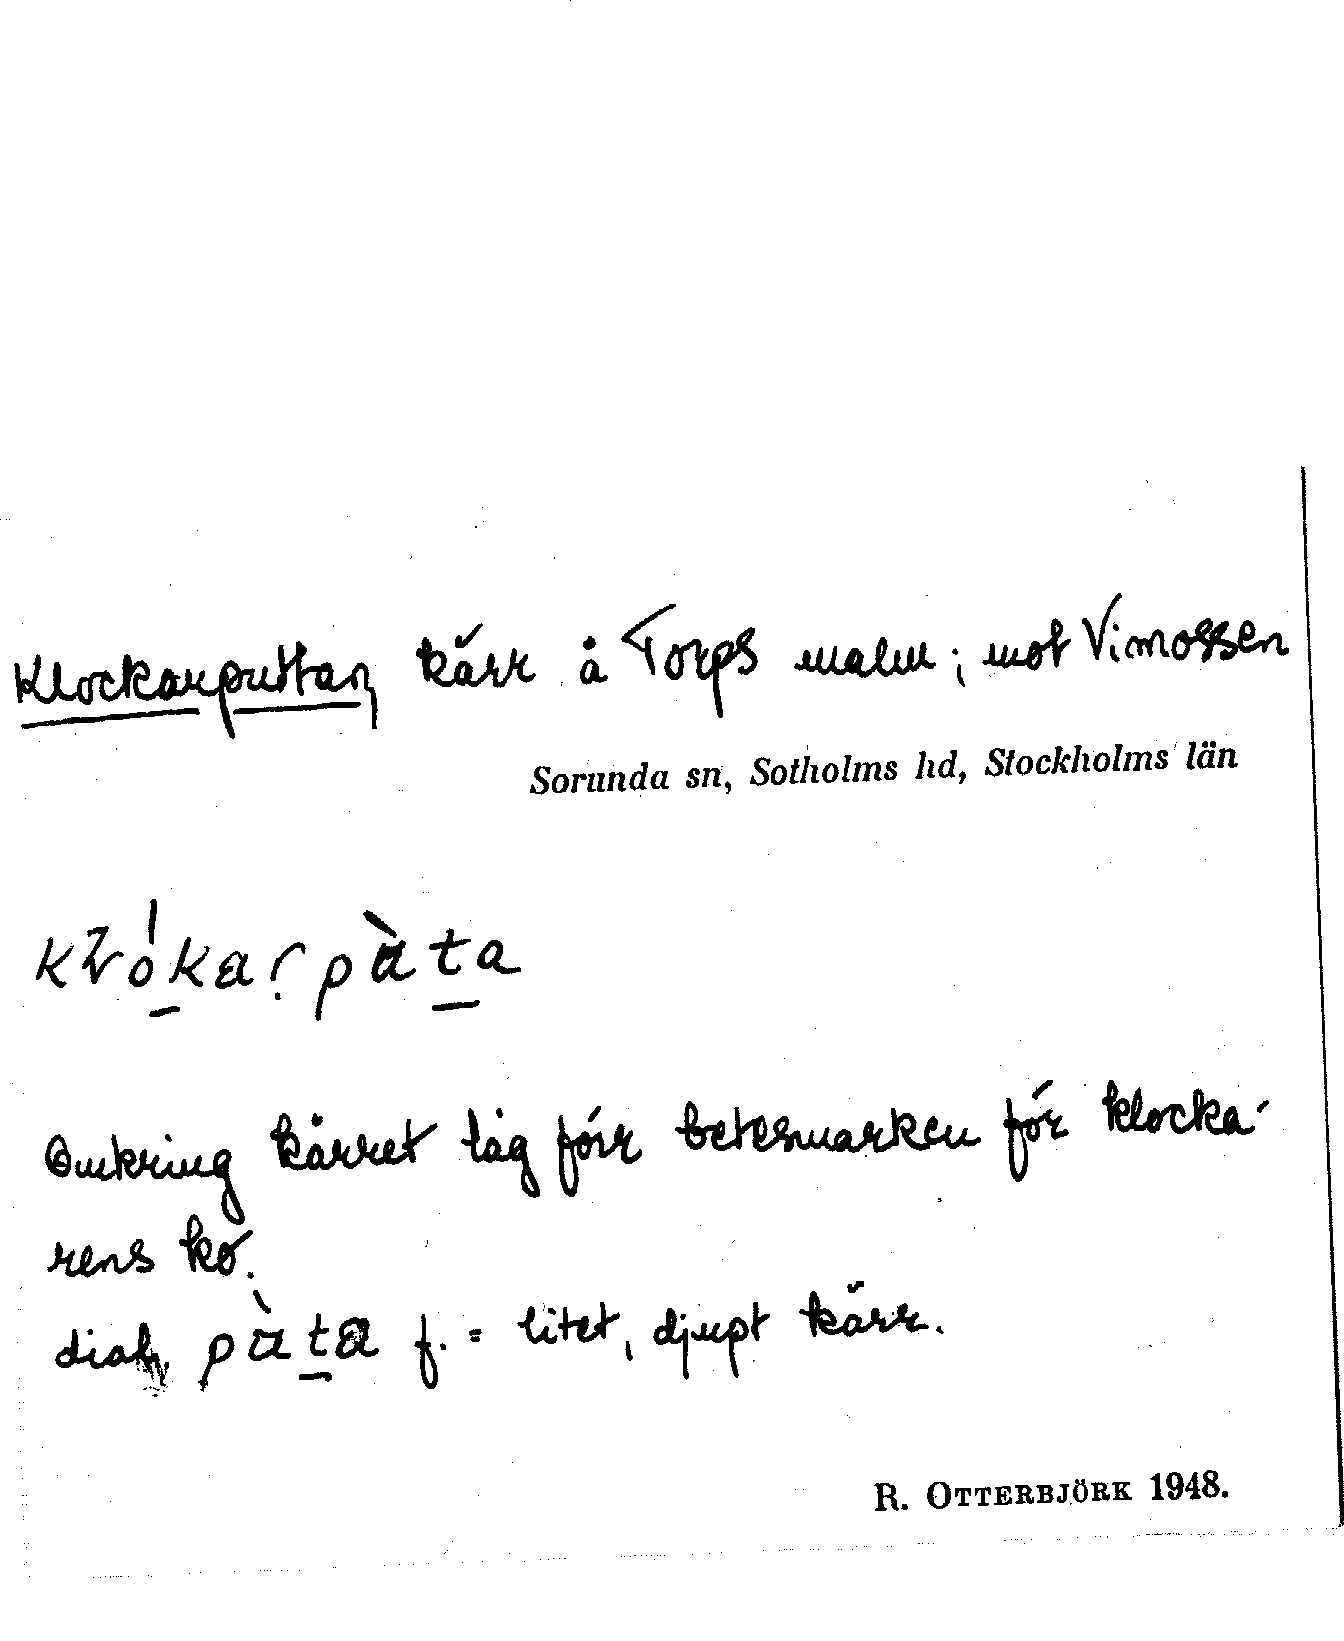 Klockarputtan, kärr å Torps malm; mot Vimossen
Sorunda sn, Sotholms hd, Stockholms län
Omkring kärret låg förr betesmarken för klocka-
rens ko.
dial. pàta f. = litet, djupt kärr.
R. OTTERBJÖRK 1948.